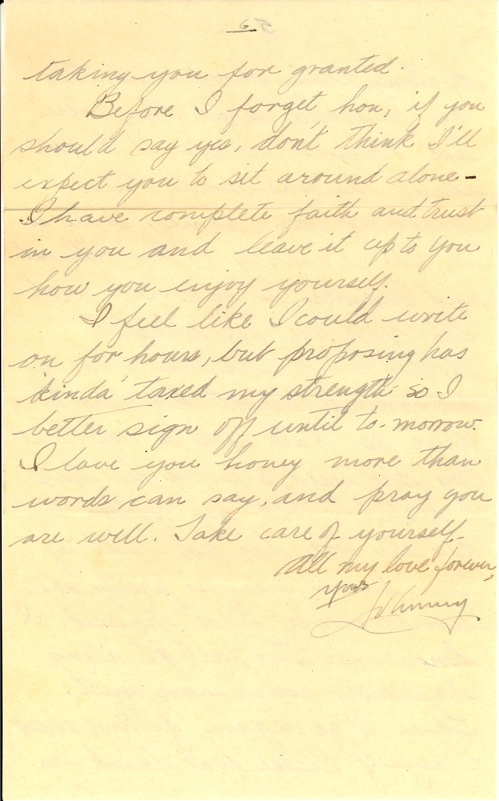 6
taking you for granted.
Before I forget hon, if you
should say yes, don't think I'll
expect you to sit around alone -
I have complete faith and trust
in you and leave it up to you
how you enjoy yourself.
I feel like I could write
on for hours, but proposing has
'kinda' taxed my strength so I
better sign off until to-morrow.
I love you honey more than
words can say, and pray you
are well. Take care of yourself.
All my love forever,
Your
Johnny